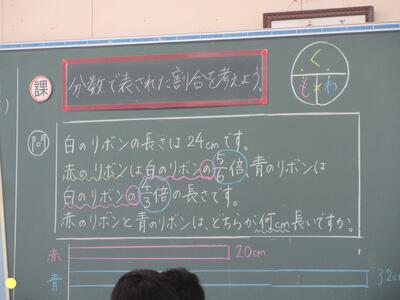 課
分数で表された割合を考えよう。
く
も × わ
問
白のリボンの長さは24cmです。
赤のリボンは白のリボンの5/6倍、青のリボンは
白のリボンの4/3倍の長さです。
赤のリボンと青のリボンは、どちらが何cm長いですか。
赤 20cm
青 32cm